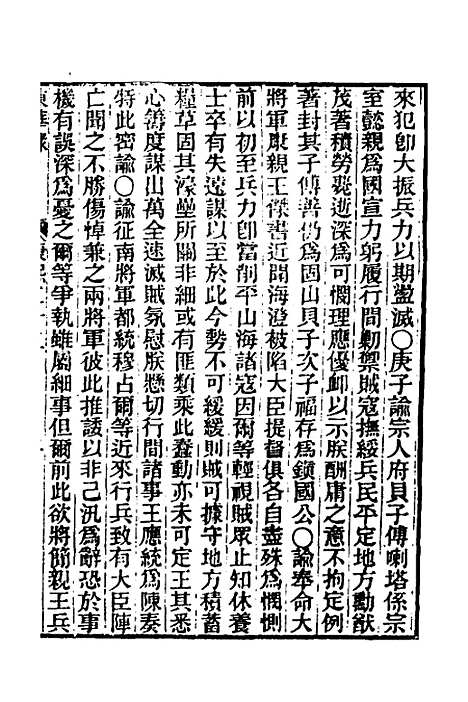 來犯卽大振兵力以期盪滅〇庚子諭宗人府貝子傅喇塔係宗
室懿親爲國宣力躬履行間勦禦賊寇撫綏兵民平定地方勳猷
茂著積勞薨逝深爲可憫理應優卹以示朕酬庸之意不拘定例
著封其子傅善仍爲固山貝子次子福存爲鎭國公〇諭奉命大
將軍康親王傑書近聞海澄被陷大臣提督俱各自盡殊爲憫惻
前以初至兵力卽當削平山海諸寇因爾等輕視賊眾止知休養
士卒有失遠謀以至於此今勢不可緩緩則賊可據守地方積蓄
糧草固其濠壘所關非細或有匪類乘此蠢動亦未可定王其悉
心籌度謀出萬全速滅賊氛慰朕懸切行間諸事王應統爲陳奏
特此密諭〇諭征南將軍都統穆占爾等近來行兵致有大臣陣
亡聞之不勝傷悼兼之兩將軍彼此推諉以非己汛爲辭恐於事
機有誤深爲憂之爾等爭執雖屬細事但爾前此欲將簡親王兵
東華錄